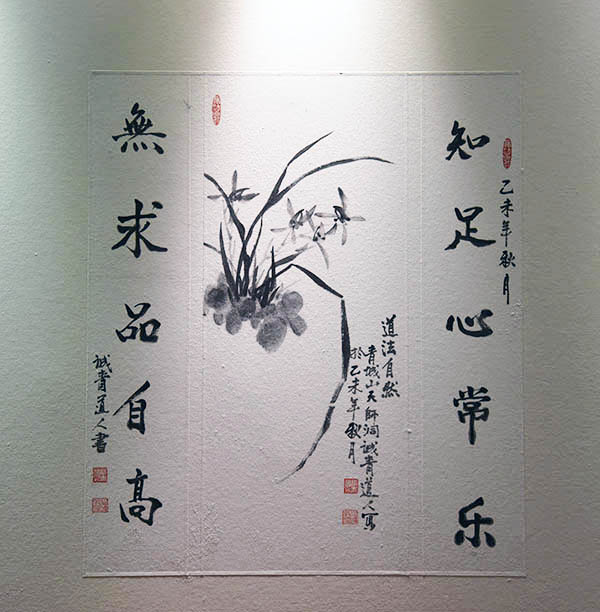 乙未年秋月
知足心常乐
道法自然
青城山天師洞誠青道人寫
於乙未年秋月
無求品自高
誠青道人書